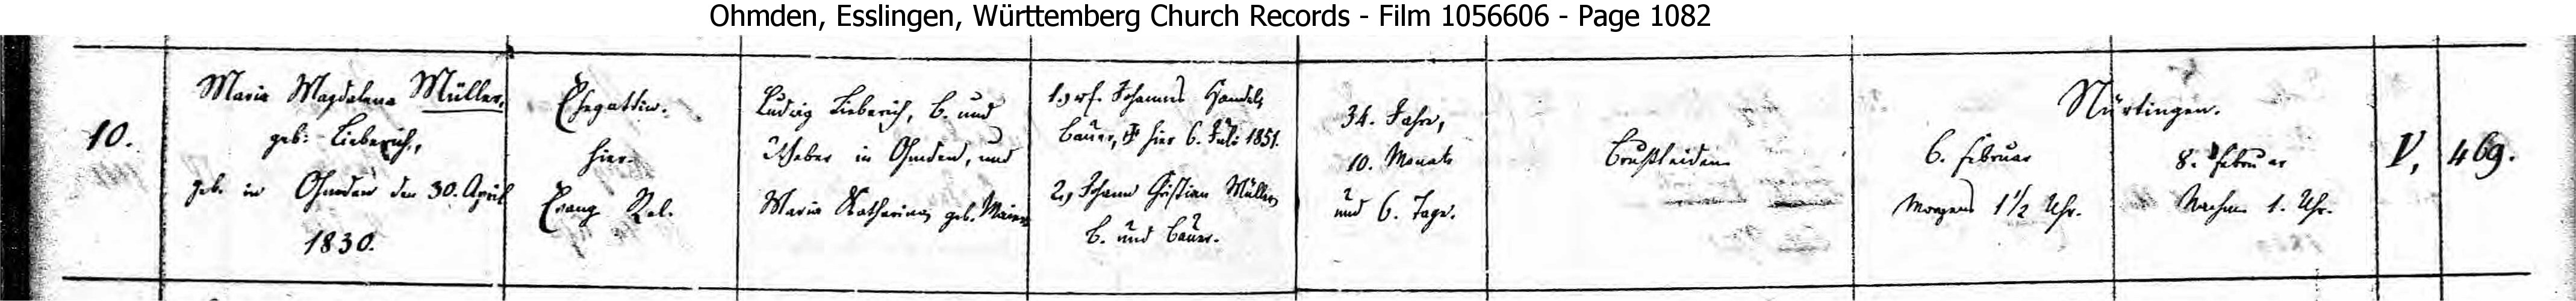 Ohmden, Esslingen, Württemberg Church Records - Film 1056606 - Page 1082
10.
Maria Magdalena Müller,
geb: Lieberich,
geb. in Ohmden den 30. April
1830.
Ehegattin.
hier.
Evang Rel.
Ludwig Lieberich, B. und
Weber in Ohmden, und
Maria Katharina, geb. Maier
1.) Johannes
Bauer, hier 6. Juli 1851.
2.) Johann Christian Müller,
B. und Bauer.
34. Jahre,
10. Monate
und 6. Tage.
Brustleiden
Nürtingen.
6. Februar
Morgens 1 1/2 Uhr.
8. Februar
Nachm. 1. Uhr.
V,
469.